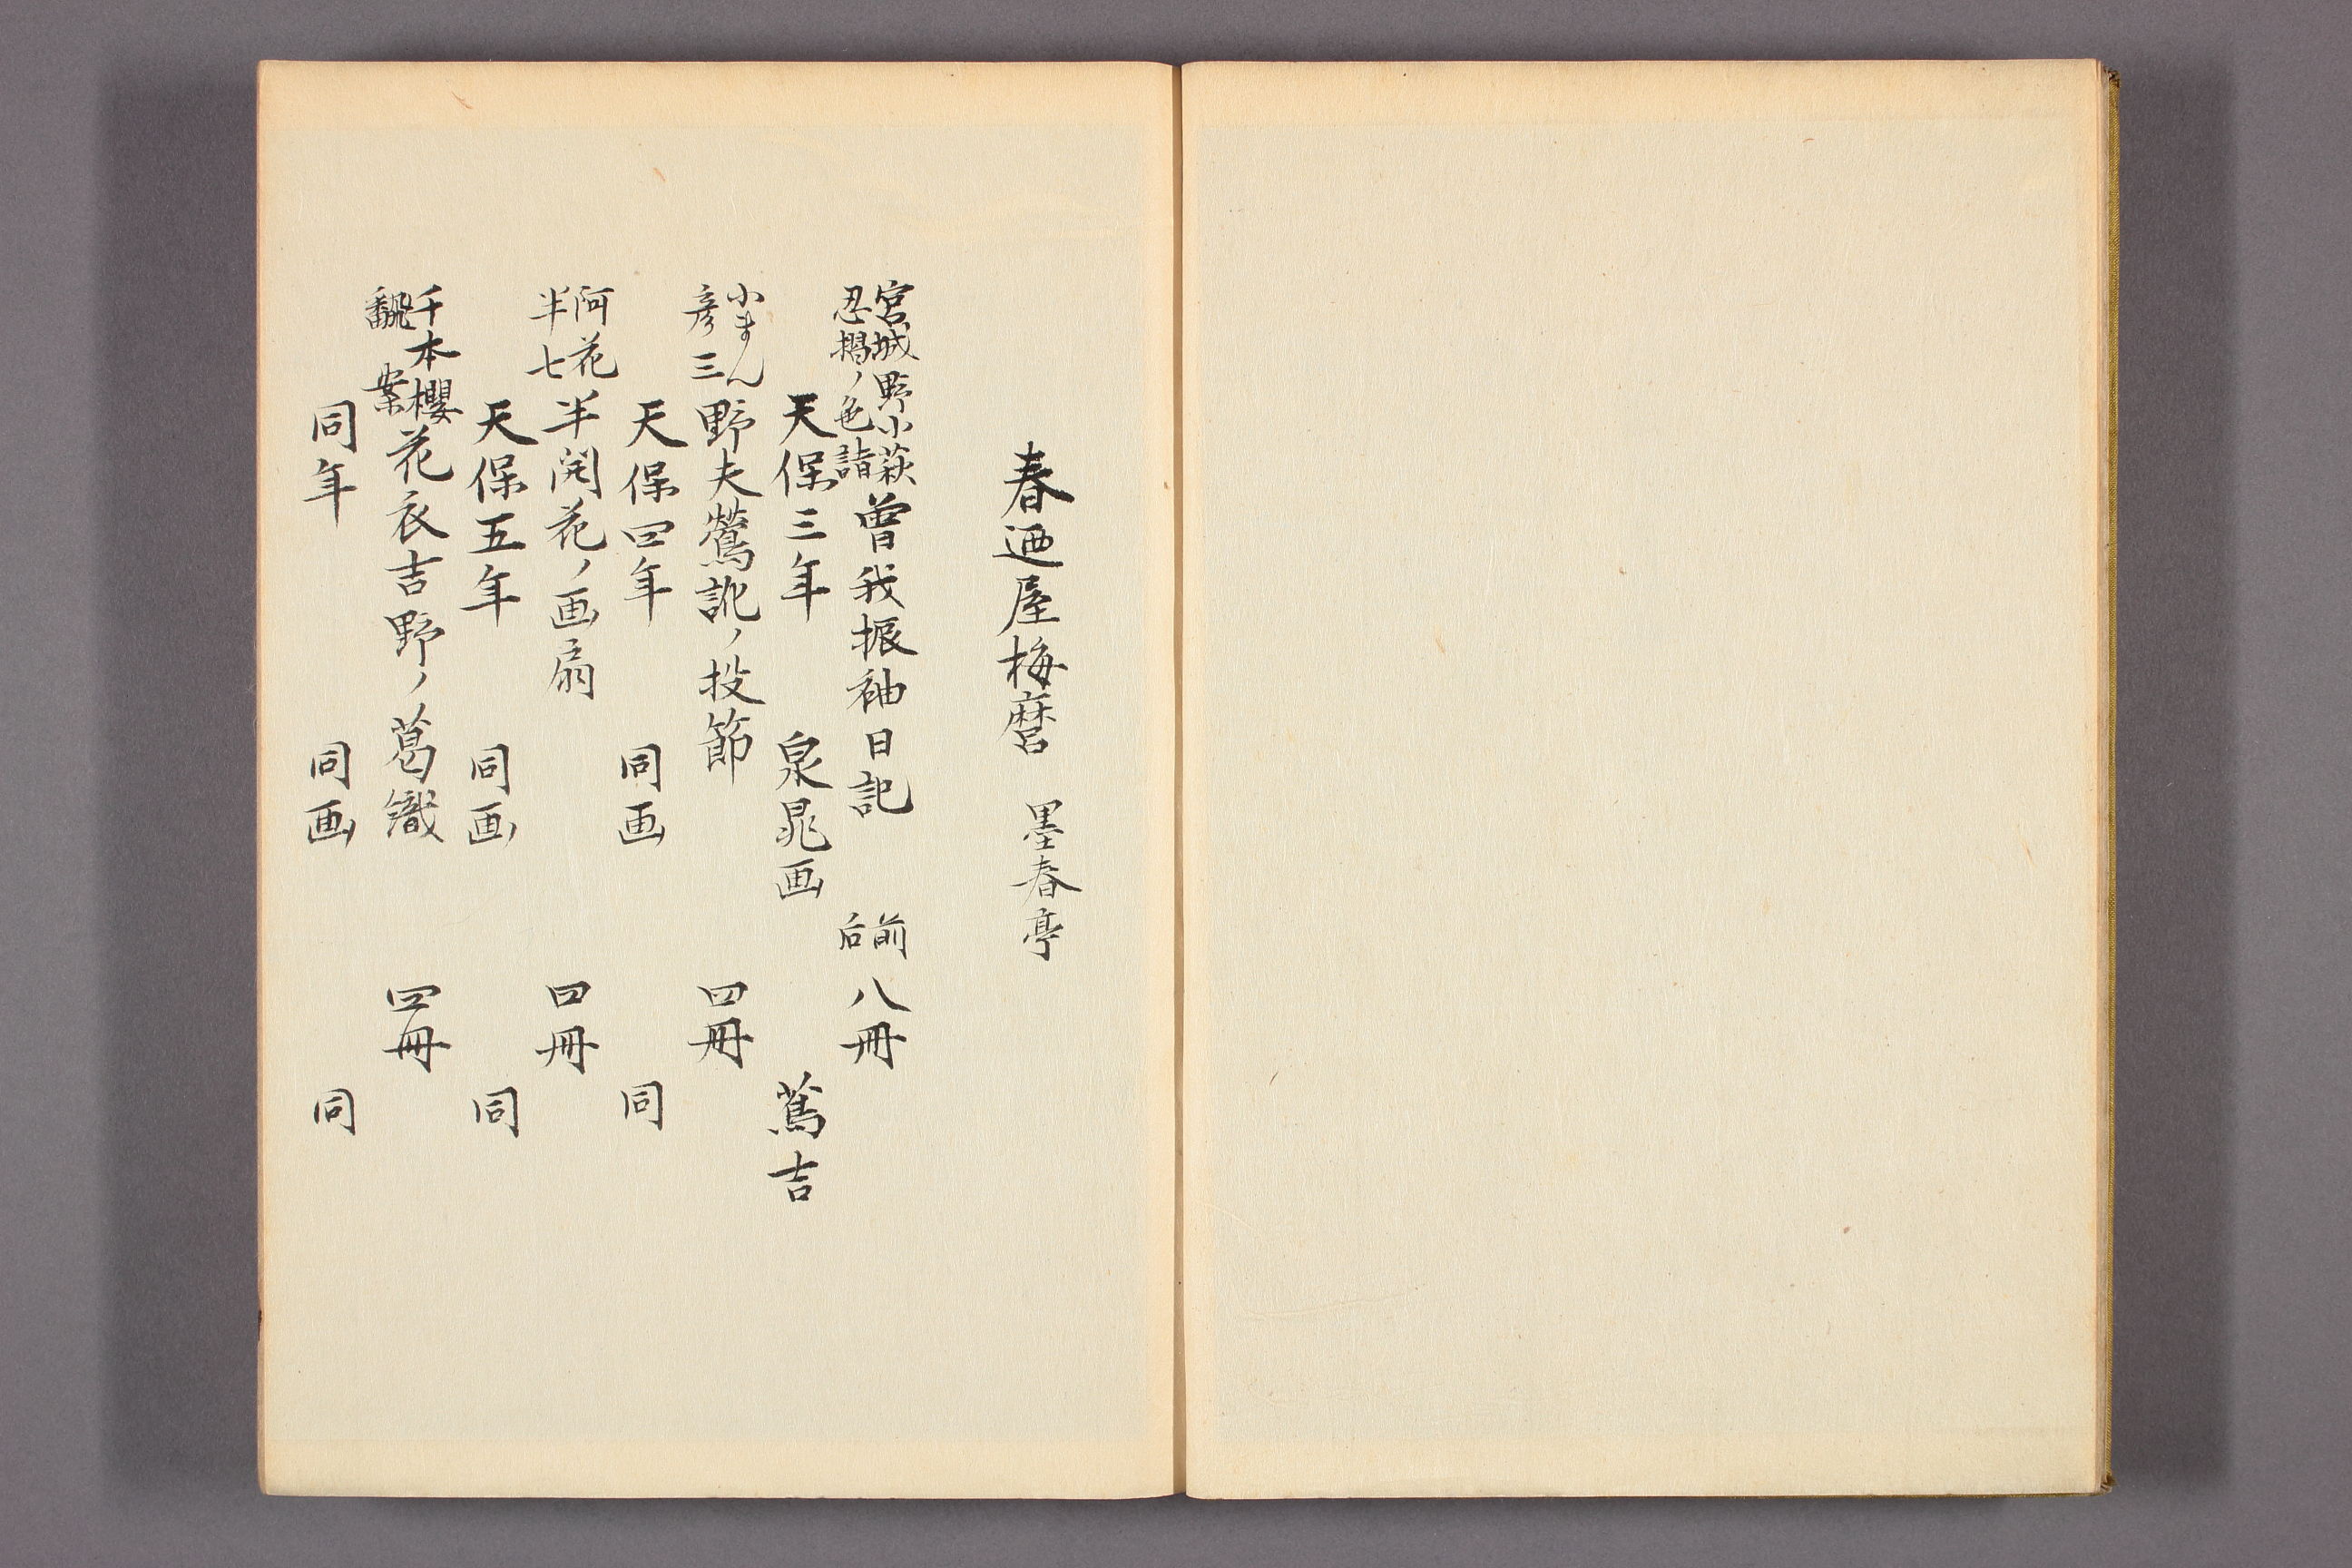 春廼屋梅麿　墨春亭
宮城野小萩
忍摺ノ色詣
曾我振袖日記　前后　八冊
天保三年　泉晁画　蔦吉
小まん
彦三
野夫鶯訛ノ投節　四冊
天保四年　同画　同
阿花
半七
半開花ノ画扇　四冊
天保五年　同画　同
千本櫻
飜案
花衣吉野ノ葛織　四冊
同年　同画　同